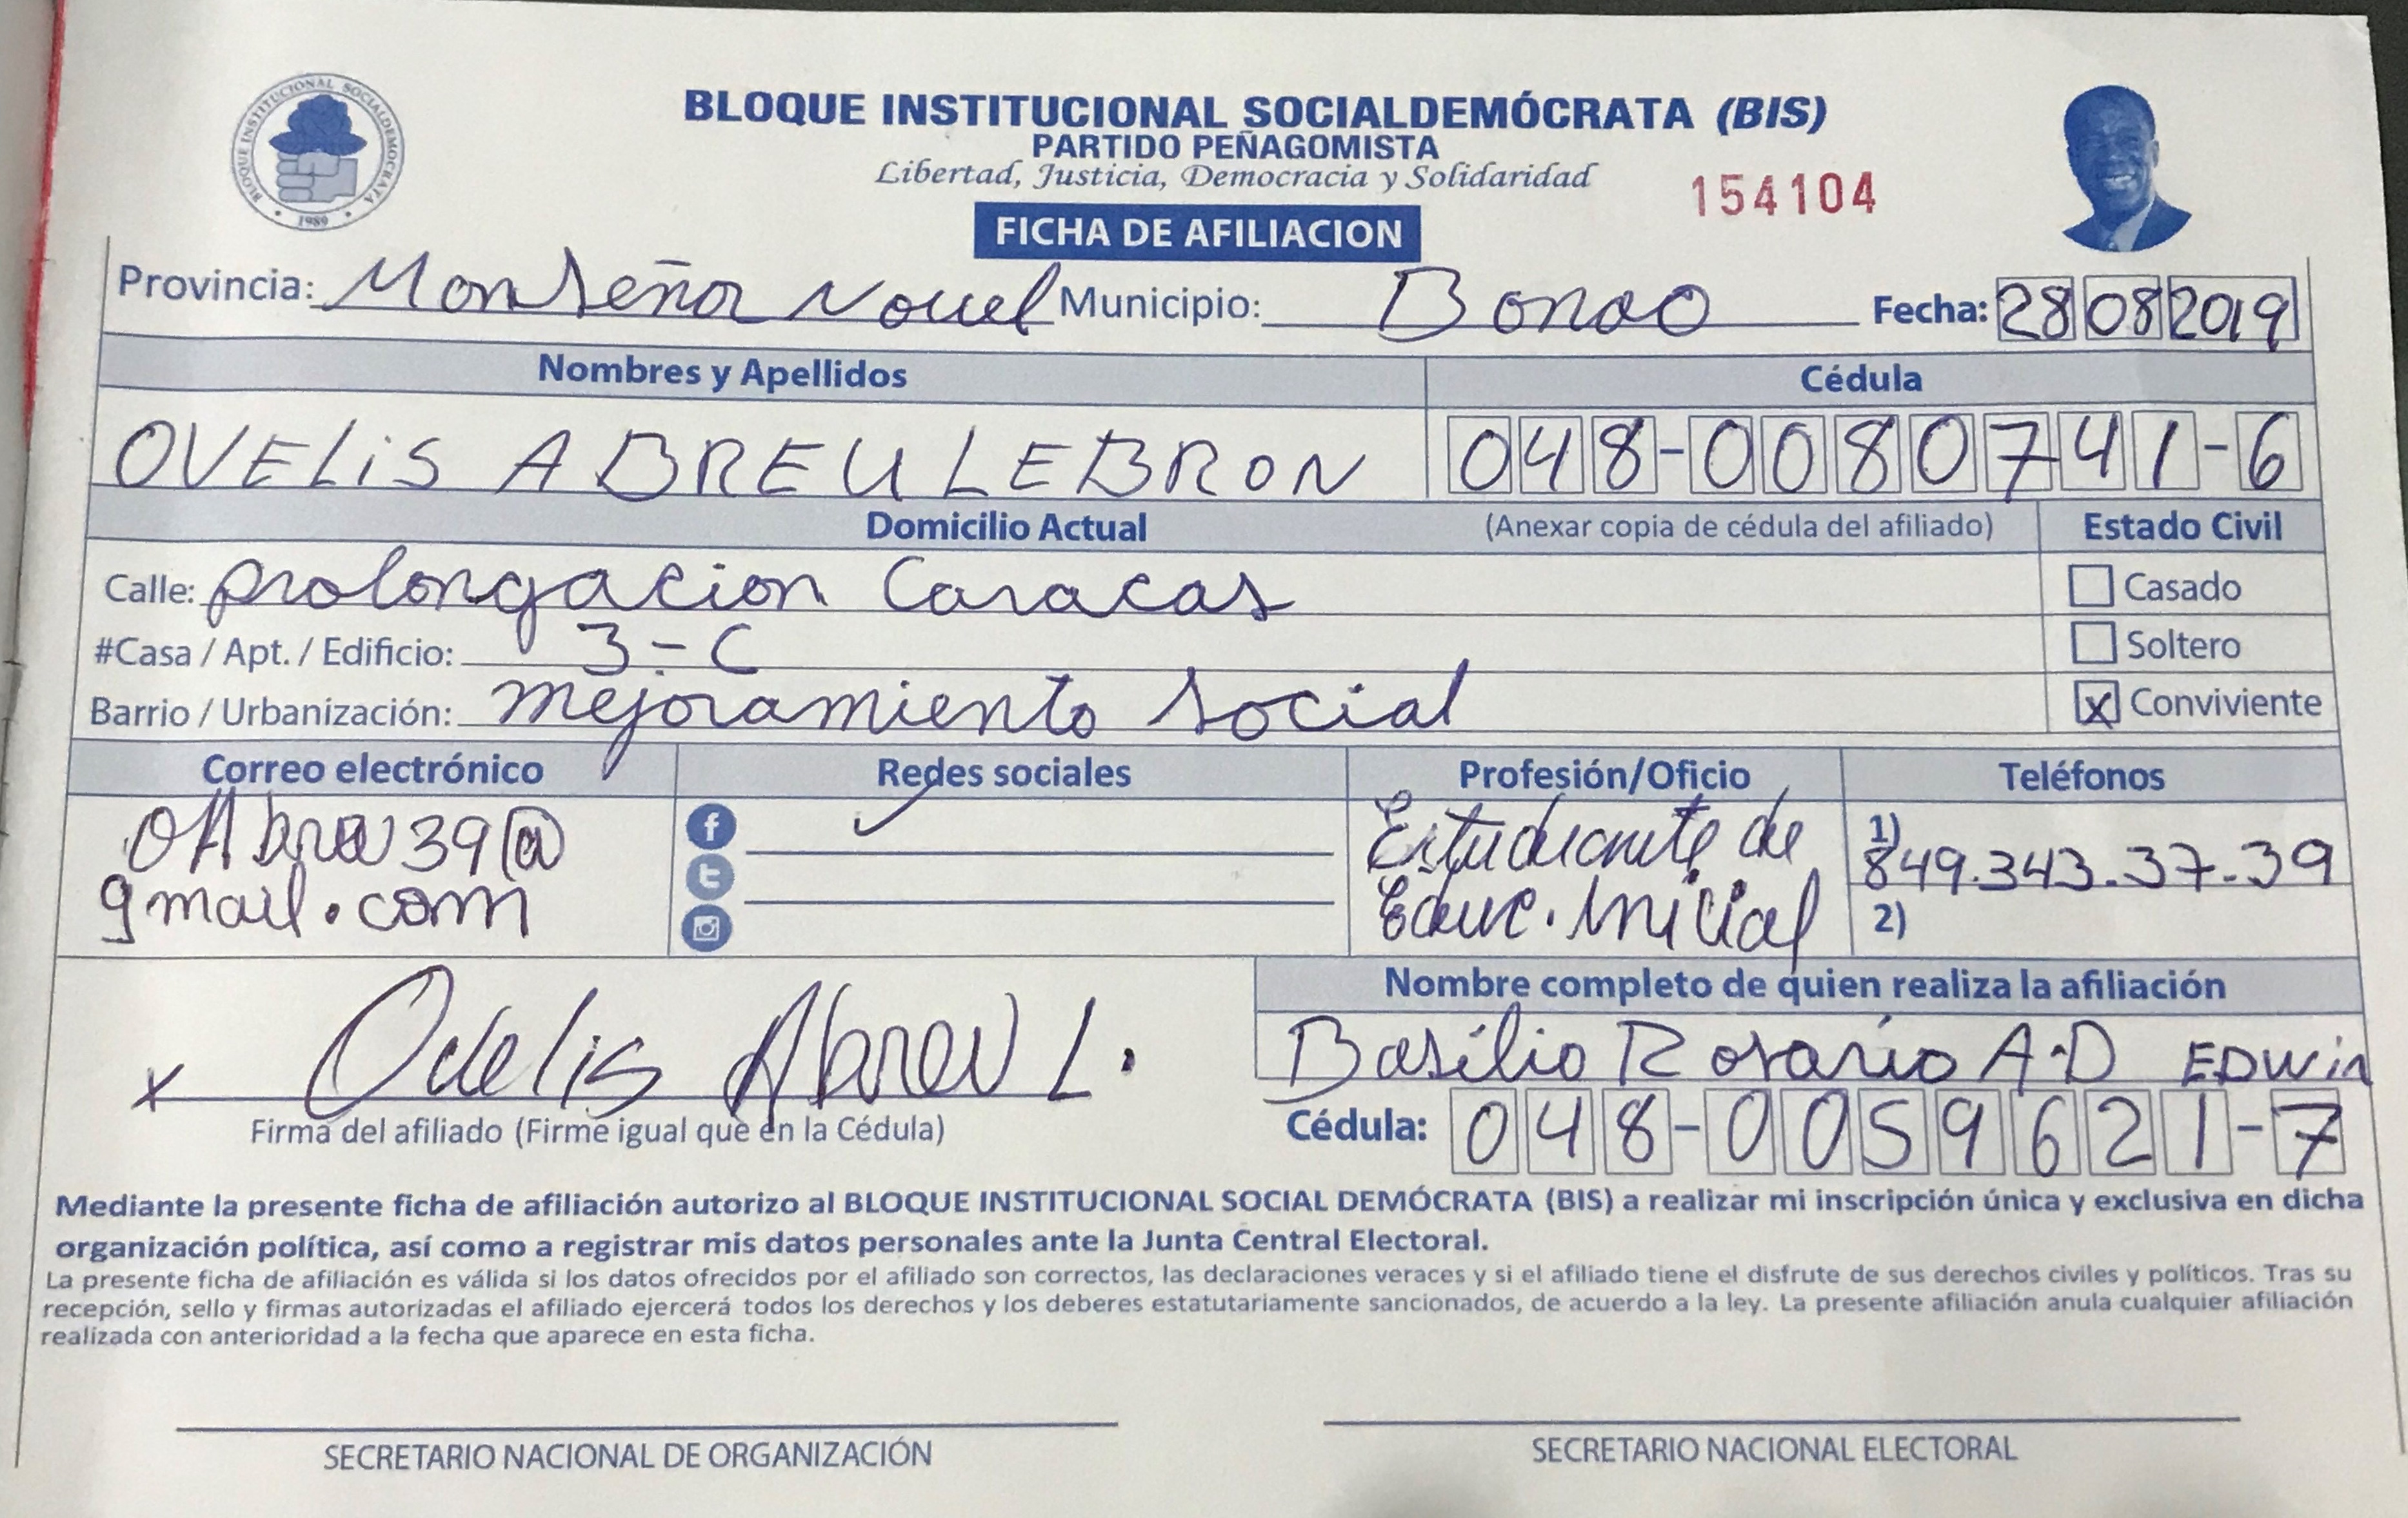 BLOQUE INSTITUCIONAL SOCIALDEMOCRATA
1989
BLOQUE INSTITUCIONAL SOCIALDEMÓCRATA (BIS)
PARTIDO PEÑAGOMISTA
Libertad, Justicia, Democracia y Solidaridad
154104
FICHA DE AFILIACION
Provincia: Monseñor Nouel Municipio: Bonao Fecha: 28 08 2019
Nombres y Apellidos Cédula
OVELiS ABREU LEBRON 048-0080741-6
Domicilio Actual (Anexar copia de cédula del afiliado) Estado Civil
Calle: prolongacion Caracas Casado
#Casa / Apt. / Edificio: 3-C Soltero
Barrio / Urbanización: mejoramiento social X Conviviente
Correo electrónico Redes sociales Profesión/Oficio Teléfonos
39@ Estudiante de 1) 849.343.37-39
gmail.com Educ. Inicial 2)
Nombre completo de quien realiza la afiliación
x Ovelis Abreu L. Basilio Rosario A.D EDWin
Firma del afiliado (Firme igual que en la Cédula) Cédula: 048-0059621-7
Mediante la presente ficha de afiliación autorizo al BLOQUE INSTITUCIONAL SOCIAL DEMÓCRATA (BIS) a realizar mi inscripción única y exclusiva en dicha
organización política, así como a registrar mis datos personales ante la Junta Central Electoral.
La presente ficha de afiliación es válida si los datos ofrecidos por el afiliado son correctos, las declaraciones veraces y si el afiliado tiene el disfrute de sus derechos civiles y políticos. Tras su
recepción, sello y firmas autorizadas el afiliado ejercerá todos los derechos y los deberes estatutariamente sancionados, de acuerdo a la ley. La presente afiliación anula cualquier afiliación
realizada con anterioridad a la fecha que aparece en esta ficha.
SECRETARIO NACIONAL DE ORGANIZACIÓN SECRETARIO NACIONAL ELECTORAL